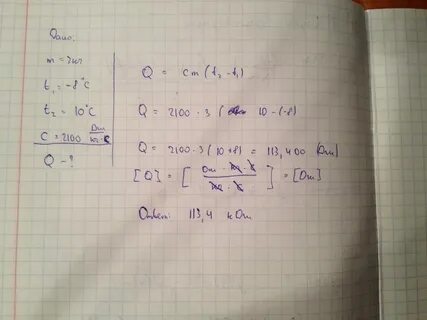 Дано:
m = 3кг
t₁ = -8°C
t₂ = 10°C
C = 2100 Дж/кг·°C
Q - ?
Q = cm(t₂ - t₁)
Q = 2100 · 3 ( 10 - (-8)
Q = 2100 · 3 (10 + 8) = 113,400 (Дж)
[Q] = [Дж · кг · °C / кг · °C] = [Дж]
Ответ: 113,4 кДж